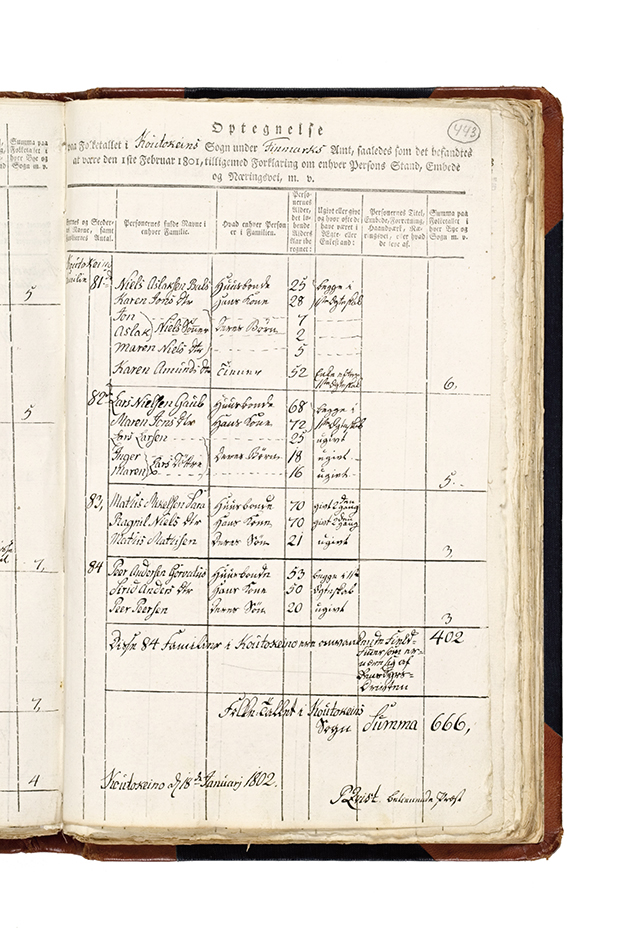 443
Optegnelse
paa Folketallet i Koutokeins Sogn under Finmarks Amt, saaledes som det befandtes
at være den 1ste Februar 1801, tilligemed Forklaring om enhver Persons Stand, Embede
og Næringsvei, m. v.
Summa paa Folketallet i hver Bye og Sogn m. v.
Navne, samt Familiernes Antal.
Personernes fulde Navne i enhver Familie.
Hvad enhver Person er i Familien.
Personernes Alder, det løbende Alders Aar iberegnet:
Ugivt eller givt og hvor ofte de have været i Ægte- eller Enkestand:
Personernes Titel, Embede, Forretning, Haandværk, Næringsvei, eller hvad de leve af.
Summa paa Folketallet i hver Bye og Sogn m. v.
Koutokeino
81 Niels Aslaksen Huusbonde 25 begge i
Karen Jons dtr Hans Kone 28 1ste Ægteskab
Jon 7
Aslak Niels Sønner Deres Børn 2
Maren Niels dtr 5
Karen Amunds dtr 52 Enke efter 1ste Ægteskab 6.
82 Lars Nielsen Gaub Huusbonde 68 begge i
Maren Jons dtr Hans Kone 72 1ste Ægteskab
Lars Larsen 25 ugivt
Inger Lars Døttre Deres Børn 18 ugivt
Maren 16 ugivt 5.
83, Mathis Mikelsen Sara Huusbonde 70 givt 2den gang
Ragnil Niels dtr Hans Kone 70 givt 2den gang
Mathis Mathisen Deres Søn 21 ugivt 3,
84 Peer Andersen Huusbonde 53 begge i 1ste
Anders dtr Hans Kone 50 Ægteskab
Peer Peersen Deres Søn 20 ugivt 3
Disse 84 Familier i Koutokeino ere 402
som ernærer sig af
Folke-Tallet i Koutokeins
Sogn Summa 666,
Koutokeino d 18de Januarj 1802.
Provst
5
5
7,
7,
4